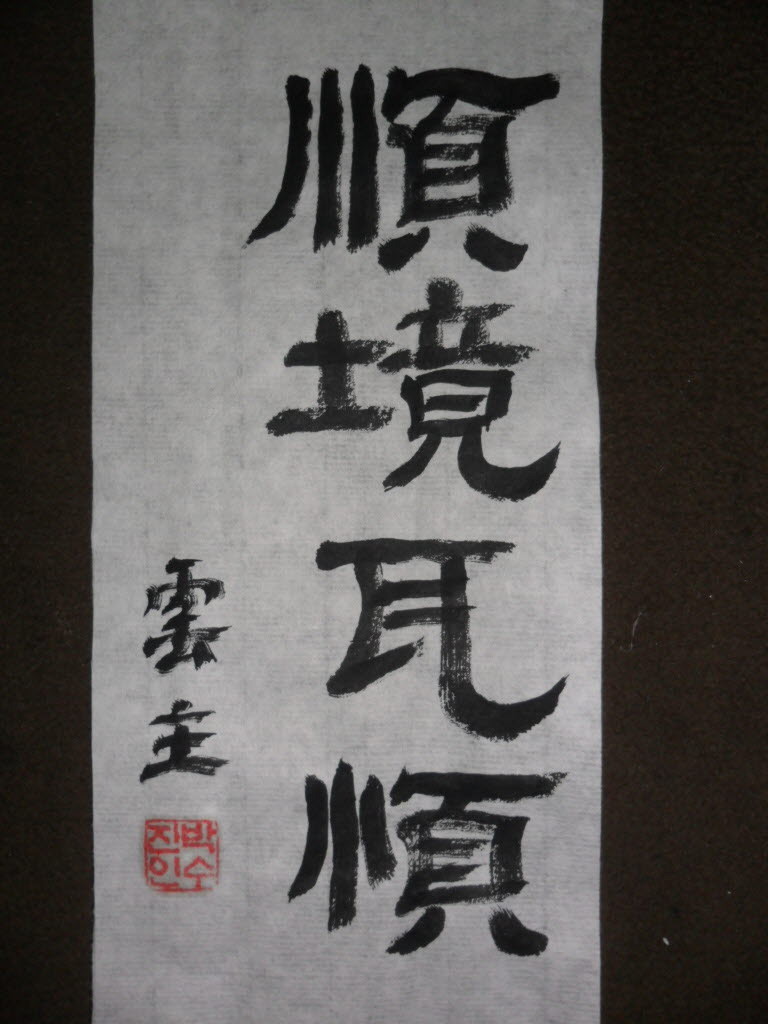 順境瓦順
雲主
박수
진인